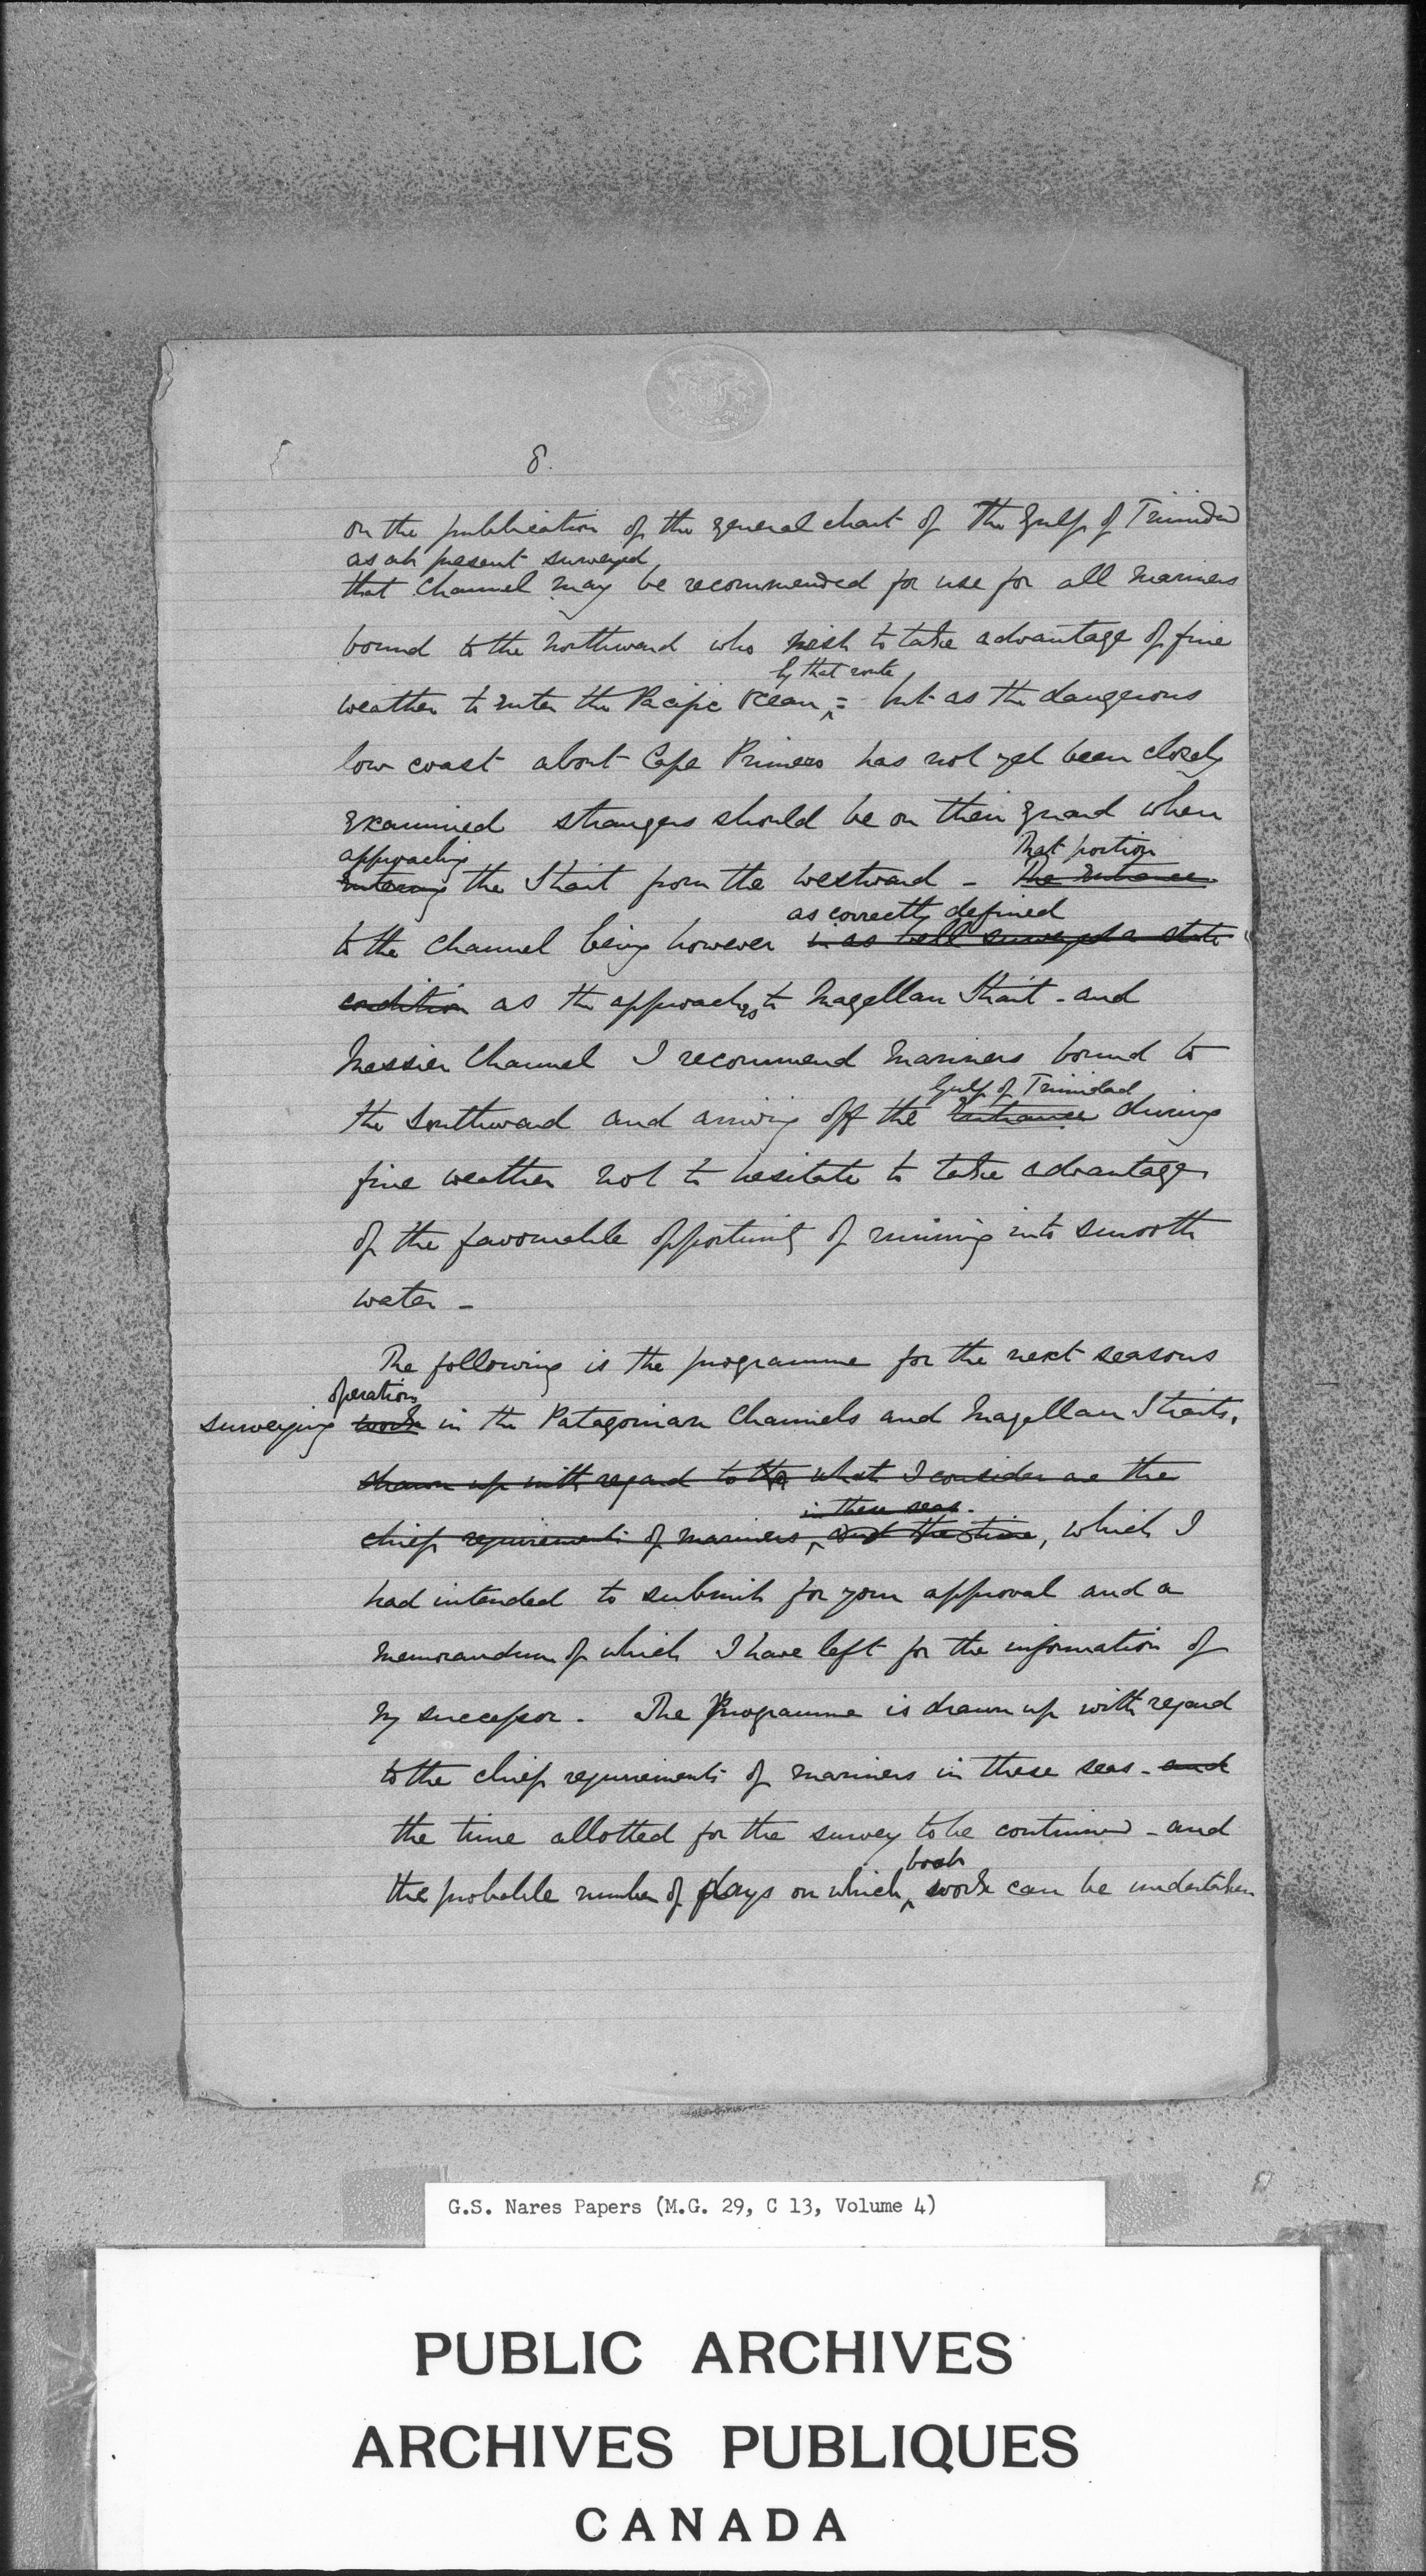 8.
on the publication of the general chart of the Gulf of Trinidad
as at present surveyed,
that Channel may be recommended for use for all mariners
bound to the northward who wish to take advantage of fine
by that route
weather to enter the Pacific Ocean = but as the dangerous
low coast about Cape Primero has not yet been closely
examined strangers should be on their guard when
approaching that portion
entering the Strait from the westward - the entrance
as correctly defined
to the Channel being however in as well surveyed a state
condition as the approaches to Magellan Strait - and
Messier Channel I recommend mariners bound to
Gulf of Trinidad
the southward and arriving off the entrance during
fine weather not to hesitate to take advantage
of the favourable opportunity of running into smooth
water -
The following is the programme for the next seasons
operations
surveying work in the Patagonian Channels and Magellan Straits,
drawn up with regard to the what I consider are the
in these seas.
chief requirements of mariners, and the time, which I
had intended to submit for your approval and a
memorandum of which I have left for the information of
my successor. The Programme is drawn up with regard
to the chief requirements of mariners in these seas - and
the time allotted for the survey to be continued - and
boat
the probable number of days on which work can be undertaken
G.S. Nares Papers (M.G. 29, C 13, Volume 4)
PUBLIC ARCHIVES
ARCHIVES PUBLIQUES
CANADA